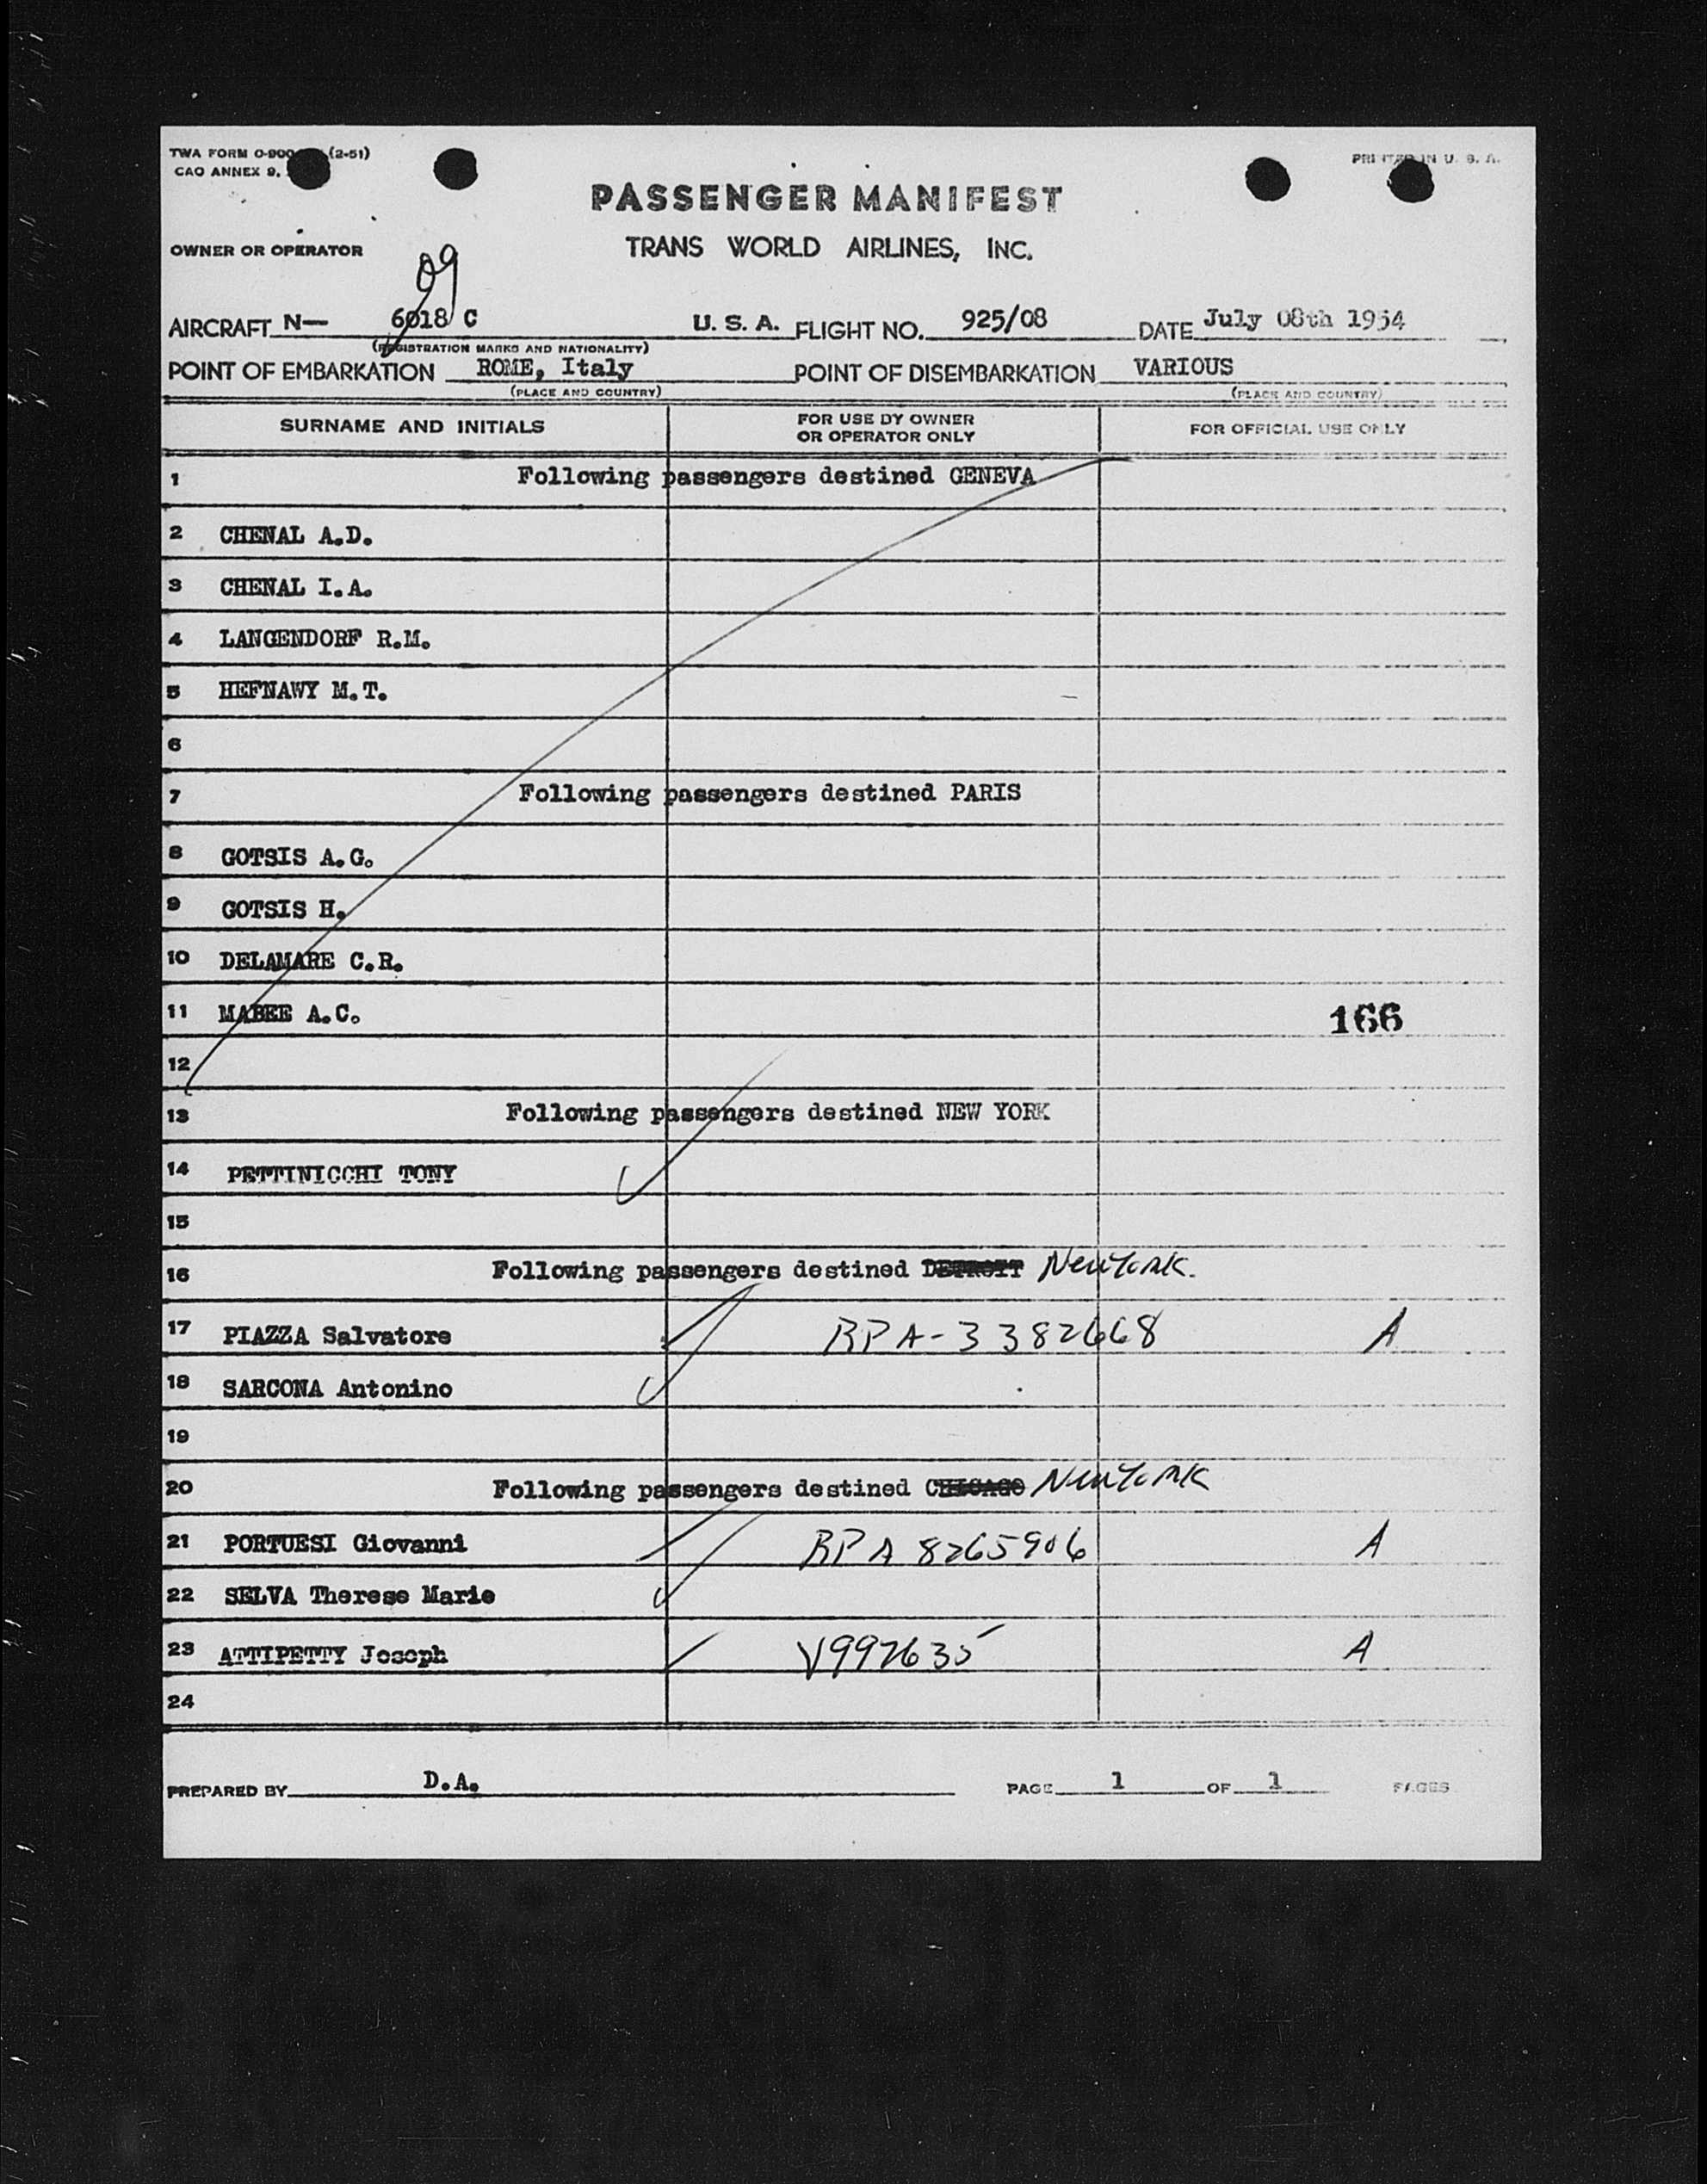 TWA FORM O-900 (2-51)
CAO ANNEX 9.
PRINTED IN U. S. A.
PASSENGER MANIFEST
OWNER OR OPERATOR TRANS WORLD AIRLINES, INC.
09
AIRCRAFT N— 6018 C U. S. A. FLIGHT NO. 925/08 DATE July 08th 1954
(REGISTRATION MARKS AND NATIONALITY)
POINT OF EMBARKATION ROME, Italy POINT OF DISEMBARKATION VARIOUS
(PLACE AND COUNTRY) (PLACE AND COUNTRY)
SURNAME AND INITIALS FOR USE BY OWNER OR OPERATOR ONLY FOR OFFICIAL USE ONLY
1 Following passengers destined GENEVA
2 CHENAL A.D.
3 CHENAL I.A.
4 LANGENDORF R.M.
5 HEFNAWY M.T.
6
7 Following passengers destined PARIS
8 GOTSIS A.G.
9 GOTSIS H.
10 DELAMARE C.R.
11 MABEE A.C. 166
12
13 Following passengers destined NEW YORK
14 PETTINICCHI TONY
15
16 Following passengers destined DETROIT New York.
17 PIAZZA Salvatore RPA-3382668 A
18 SARCONA Antonino
19
20 Following passengers destined CHICAGO New York
21 PORTUESI Giovanni RPA 8265906 A
22 SELVA Therese Marie
23 ATTIPETTY Joseph V997635 A
24
PREPARED BY D.A. PAGE 1 OF 1 PAGES